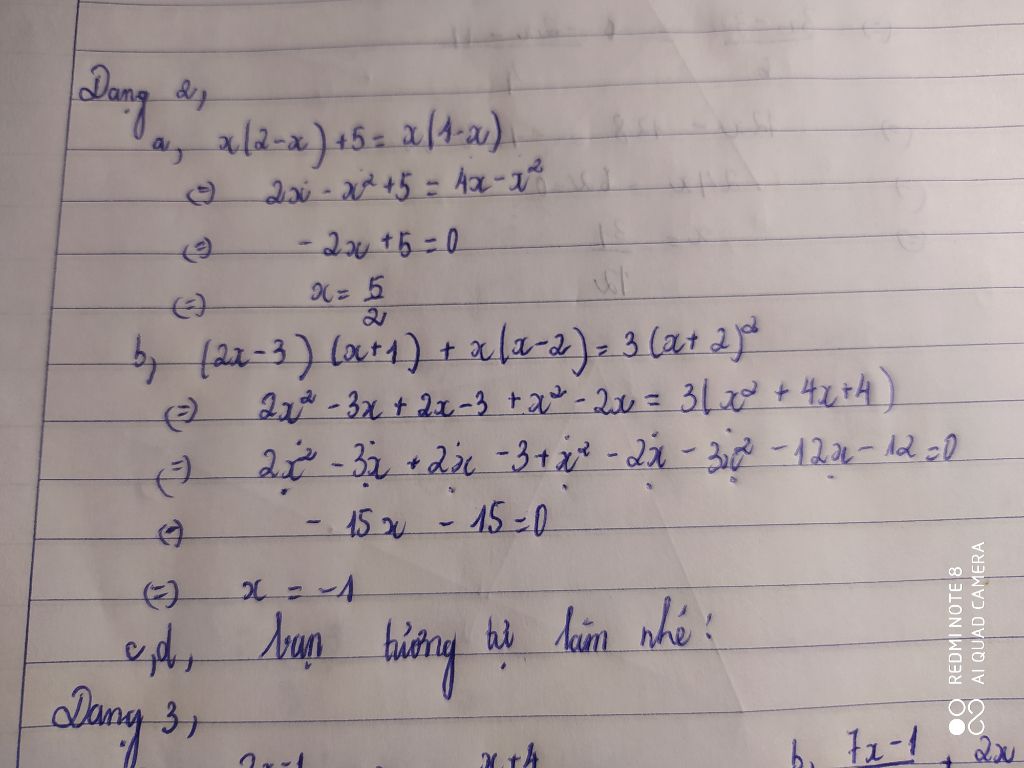 Dạng 2,
a, x(2-x)+5 = x(4-x)
(=) 2x - x² + 5 = 4x - x²
(=) - 2x + 5 = 0
(=) x = 5/2
b, (2x-3) (x+1) + x(x-2) = 3(x+2)²
(=) 2x² - 3x + 2x - 3 + x² - 2x = 3(x² + 4x + 4)
(=) 2x² - 3x + 2x - 3 + x² - 2x - 3x² - 12x - 12 = 0
(=) - 15x - 15 = 0
(=) x = -1
c,d, bạn tương tự làm nhé!
Dạng 3,
x+4 b, 7x-1 + 2x
REDMI NOTE 8
AI QUAD CAMERA